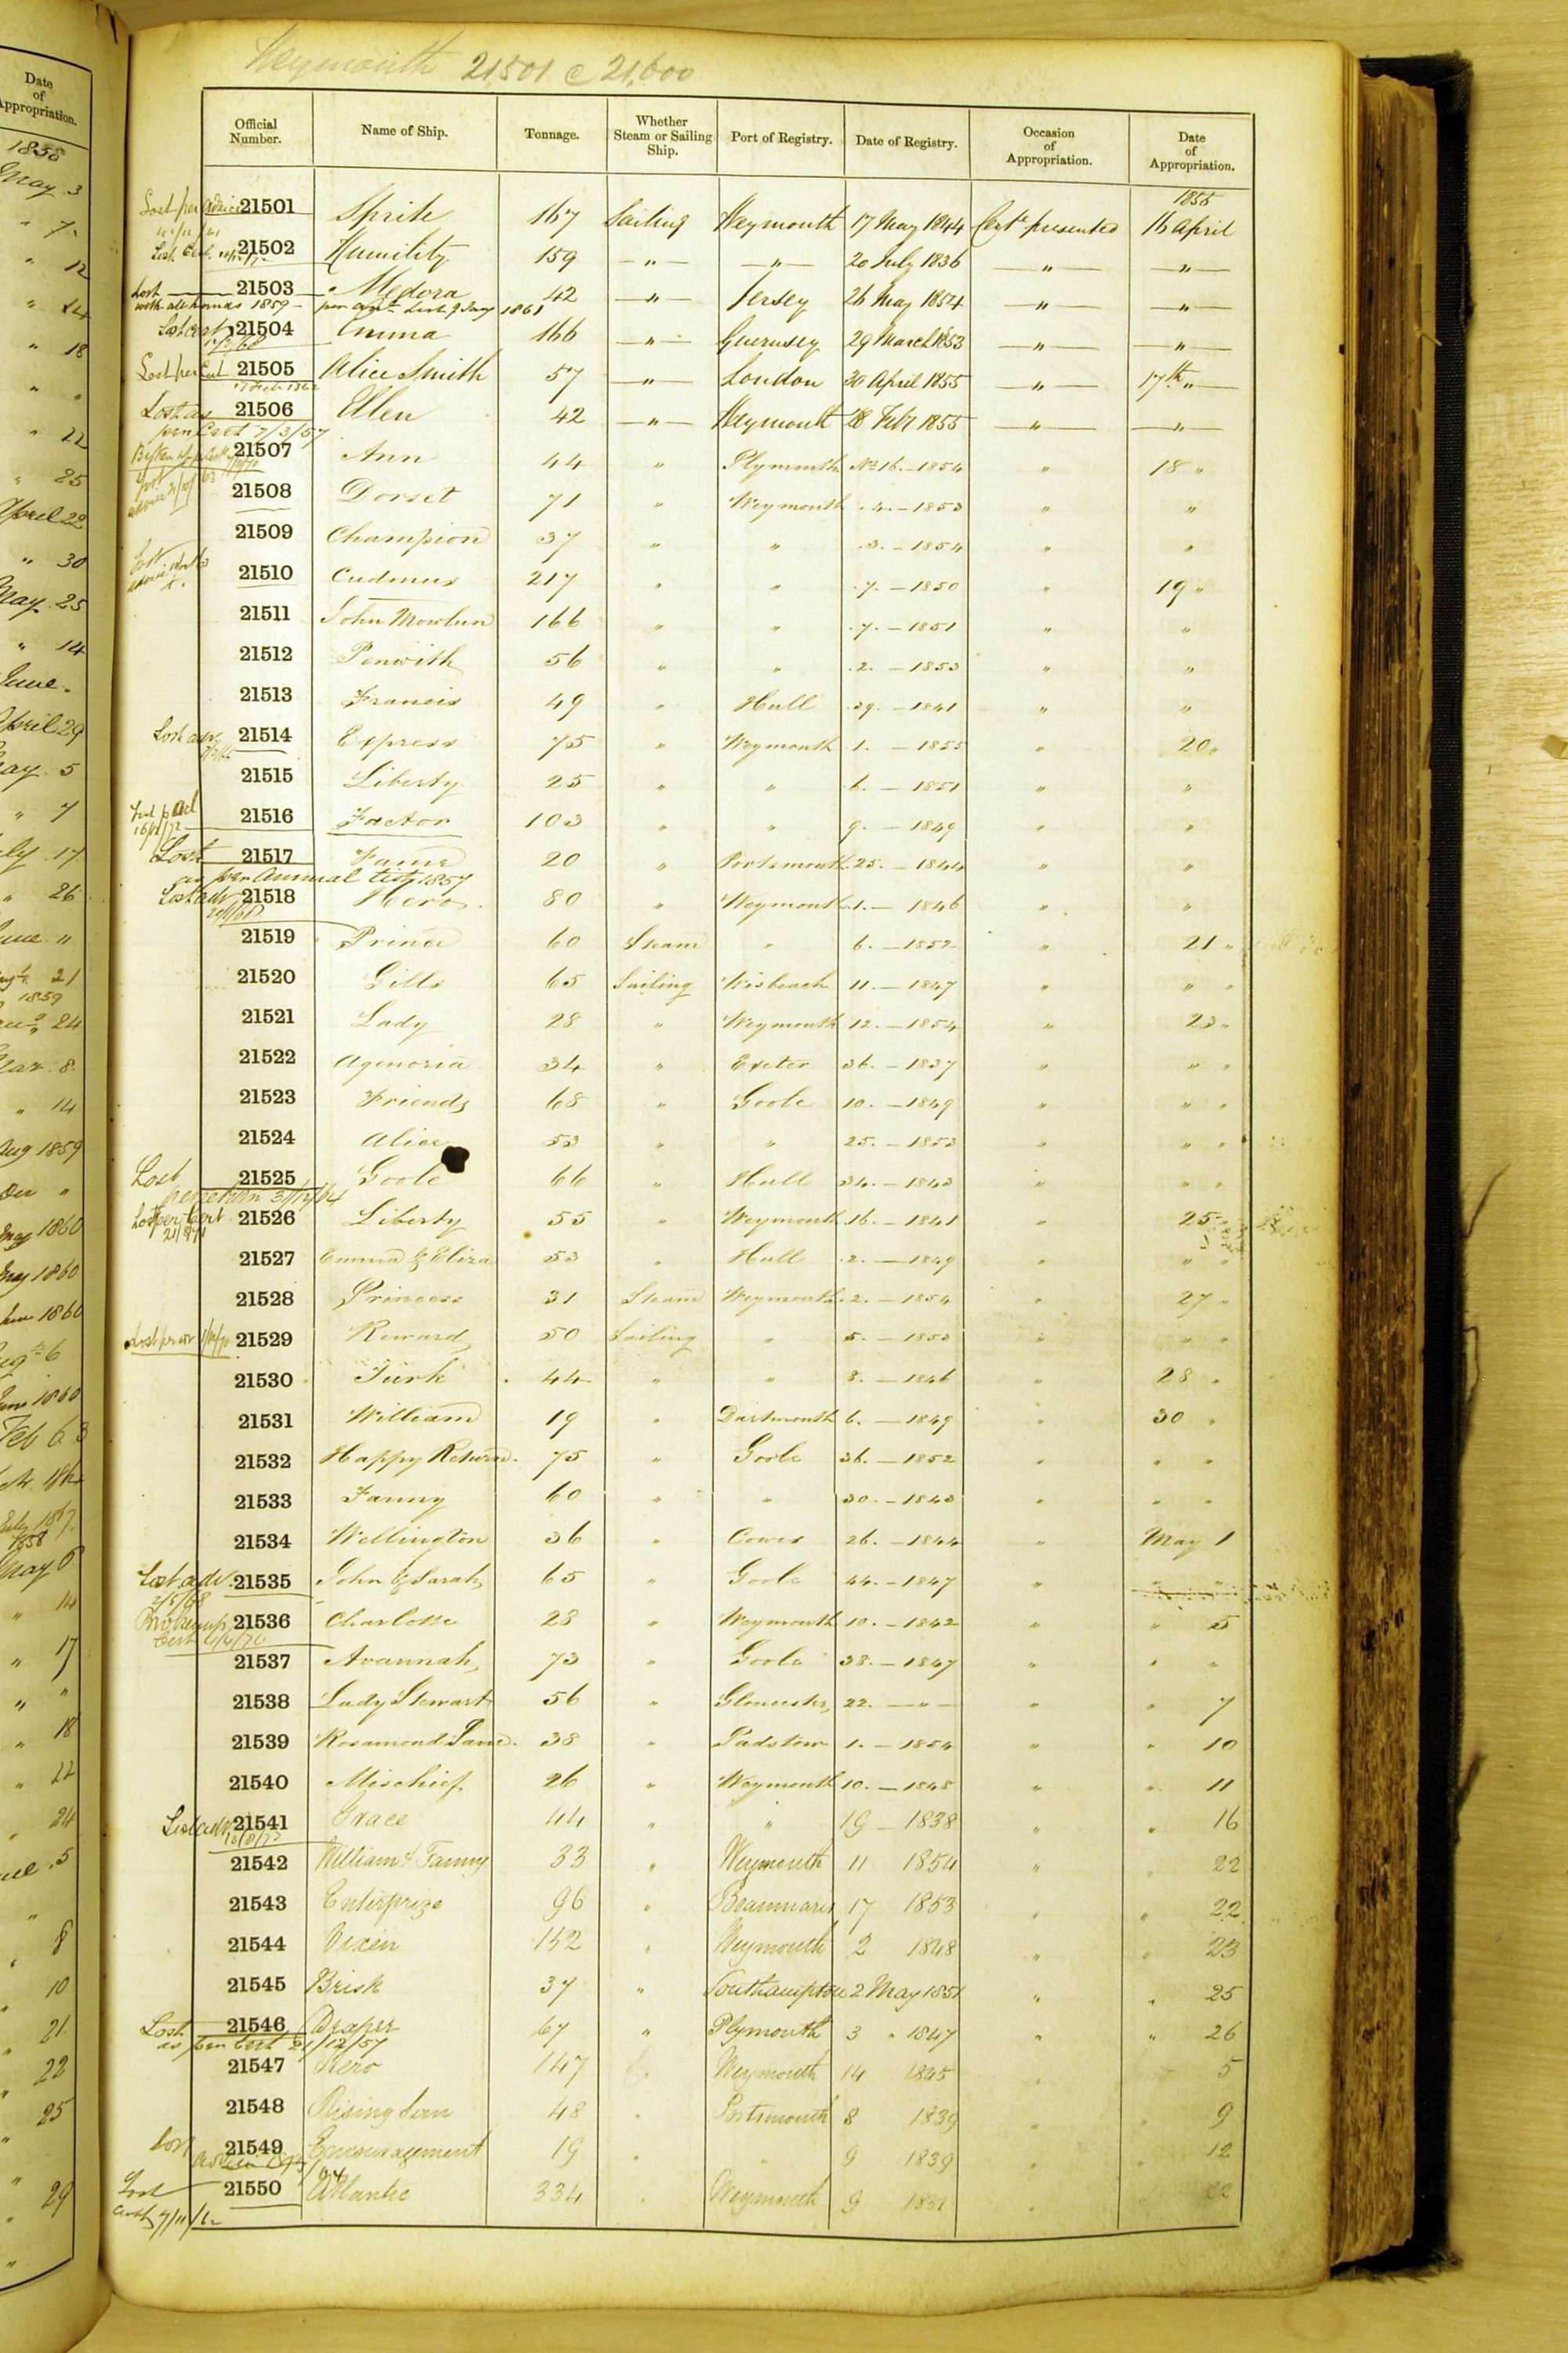 Weymouth 21501 @ 21,600
Official Number. Name of Ship. Tonnage. Whether Steam or Sailing Ship. Port of Registry. Date of Registry. Occasion of Appropriation. Date of Appropriation.
1855
21501 Sprite 167 Sailing Weymouth 17 May 1844 Cert presented 16 April
21502 Humility 159 " " 20 July 1836 " "
Lost 21503 Medora 42 " Jersey 26 May 1854 " "
with all hands 1859 - per List 9 Jany 1861
21504 Emma 166 " Guernsey 29 March 1853 " "
Lost per Cert 21505 Alice Smith 57 " London 30 April 1855 " 17th "
17 Feb 1862
Lost as 21506 Ellen 42 " Weymouth 28 Feb 1855 " "
per Cert 7/3/57
21507 Ann 44 " Plymouth No 16. - 1854 " 18 "
21508 Dorset 71 " Weymouth 4. - 1853 " "
21509 Champion 37 " " 3. - 1854 " "
21510 Cadmus 217 " " 7. - 1850 " 19 "
21511 John Mowlem 166 " " 7. - 1851 " "
21512 Penwith 56 " " 2. - 1853 " "
21513 Francis 49 " Hull 29. - 1841 " "
21514 Express 75 " Weymouth 1. - 1855 " 20 "
21515 Liberty 25 " " 6. - 1851 " "
21516 Factor 103 " " 9. - 1849 " "
Lost 21517 Fame 20 " Portsmouth 25. - 1844 " "
as per Annual List 1857
Lost adv 21518 Hero 80 " Weymouth 1. - 1846 " "
21519 Prince 60 Steam " 6. - 1852 " 21 "
21520 Gills 65 Sailing Wisbeach 11. - 1847 " " "
21521 Lady 28 " Weymouth 12. - 1854 " 23 "
21522 Agenoria 34 " Exeter 36. - 1837 " " "
21523 Friends 68 " Goole 10. - 1849 " " "
21524 Alice 53 " " 25. - 1853 " " "
Lost 21525 Goole 66 " Hull 34. - 1843 " " "
per return 31/12/64
Lost per Cert 21526 Liberty 55 " Weymouth 16. - 1841 " 25 "
21527 Emma & Eliza 53 " Hull 2. - 1849 " " "
21528 Princess 31 Steam Weymouth 2. - 1854 " 27 "
21529 Reward 50 Sailing " 5. - 1853 " " "
21530 Turk 44 " " 8. - 1846 " 28 "
21531 William 19 " Dartmouth 6. - 1849 " 30 "
21532 Happy Return 75 " Goole 36. - 1852 " " "
21533 Fanny 60 " " 30. - 1843 " " "
21534 Wellington 36 " Cowes 26. - 1844 " May 1
Lost adv. 21535 John & Sarah 65 " Goole 44. - 1847 " " "
2/5/68
21536 Charlotte 28 " Weymouth 10. - 1842 " " 5
21537 Avannah 73 " Goole 38. - 1847 " " "
21538 Lady Stewart 56 " Gloucester 22. - " - " " 7
21539 Rosamond Jane 38 " Padstow 1. - 1854 " " 10
21540 Mischief 26 " Weymouth 10. - 1848 " " 11
Lost adv 21541 Grace 44 " " 19 - 1838 " " 16
21542 William & Fanny 33 " Weymouth 11 1854 " " 22
21543 Enterprize 96 " Beaumaris 17 1853 " " 22
21544 Vixen 142 " Weymouth 2 1848 " " 23
21545 Brisk 37 " Southampton 2 May 1851 " " 25
Lost 21546 Draper 67 " Plymouth 3 " 1847 " " 26
as per Cert 21/12/57
21547 Hero 147 Weymouth 14 1845 " 5
21548 Rising Sun 48 " Portsmouth 8 1839 " " 9
Lost 21549 Encouragement 19 " " 9 1839 " " 12
Lost 21550 Atlantic 334 " Weymouth 9 1831 " 22
Certf 7/11/62
Date of Appropriation.
1858
May 3
" 7
" 12
" 24
" 18
" "
" 22
" 25
April 22
" 30
May 25
" 14
June
April 29
May 5
" 7
July 17
" 26
June "
21
1859
24
Mar 8
" 14
Aug 1859
Dec "
May 1860
May 1860
June 1860
Aug 6
June 1860
Feb 63
1858
May 6
" 14
" 17
" "
" 18
" 22
" 24
June 5
"
" 8
" 10
" 21
" 22
" 25
"
" 29
"